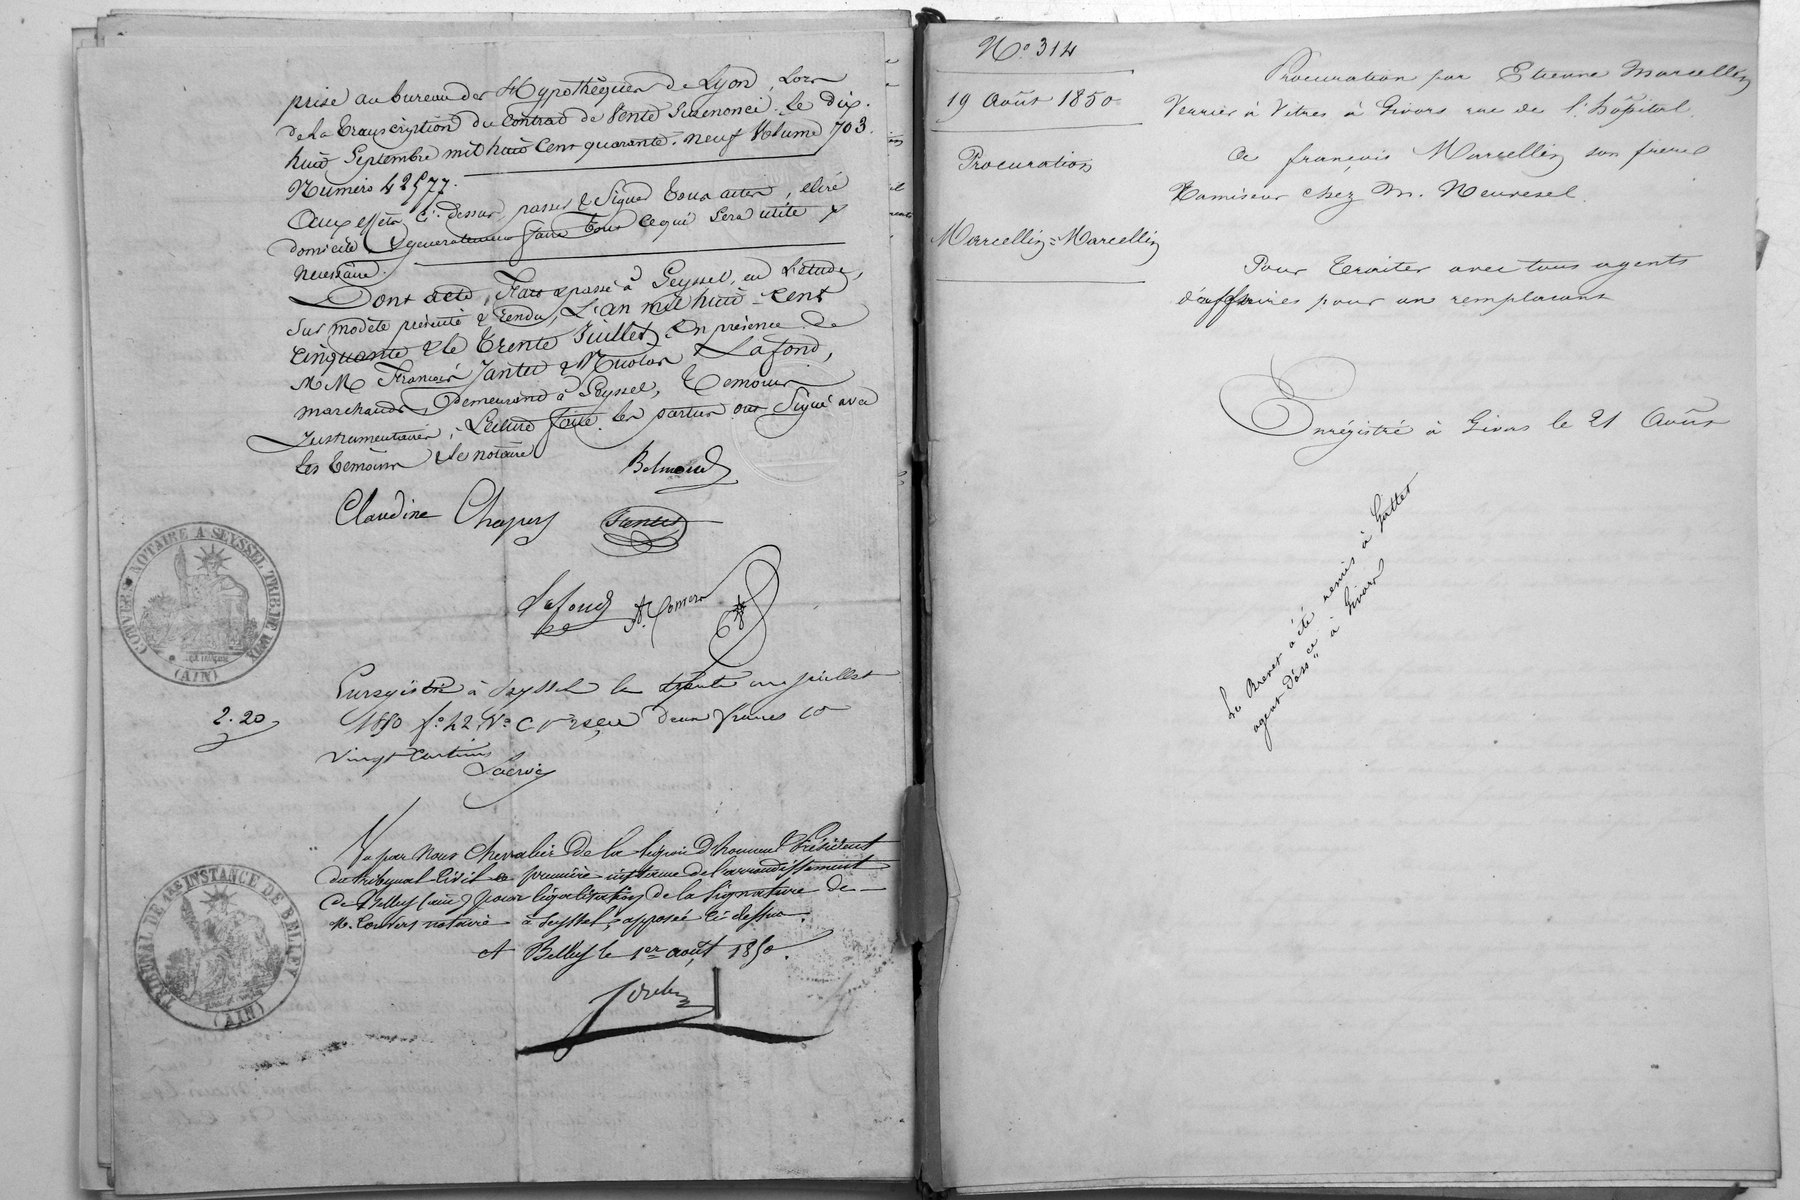 prise au bureau des Hypothèques de Lyon, Lors
de la transcription du Contrat de Vente Susenoncé. le dix-
huit Septembre mil huit Cent quarante-neuf Volume 703.
Numéro 42577.
Aux effets ci-dessus, passer & Signer tous actes, eliré
domicile & generalement faire tous ce qui Sera utile &
necessaire.
Dont acte, Fait & passé à Seyssel, en l'étude,
Sur modèle présenté & rendu, L'an mil huit-Cent
Cinquante & le trente Juillet, En présence de
MM François Jantet & Nicolas Lafond,
marchands Demeurand à Seyssel, temoins
Instrumentaires; Lecture faite, les parties ont Signé avec
les temoins & le notaire
Belmond
Claudine Chapuy Jantet
Lafond
CONVERS NOTAIRE A SEYSSEL TRIB.
(AIN)
Enregistré à Seyssel le trente un juillet
1850 fo 42, Vo C reçu deux francs
2.20
vingt centimes
Vu par Nous Chevalier de la légion d'honneur Président
du tribunal Civil de première instance de l'arrondissement
de Belley (ain) pour légalisation de la signature de
Me. Convers notaire à Seyssel, apposée ci-dessus.
A Belley le 1er août 1850.
TRIBUNAL DE 1ERE INSTANCE DE BELLEY
(AIN)
No 314
19 Août 1850
Procuration
Marcellin = Marcellin
Procuration par Etienne Marcellin
Verrier à Vitres à Givors rue de l'hôpital.
a françois Marcellin son frere
Tamiseur chez M. Neuvesel.
Pour traiter avec tous agents
d'affaires pour un remplacant
Enrégistré à Givors le 21 Août
Le Brevet a été remis à Gattet
agent d'assce à Givors